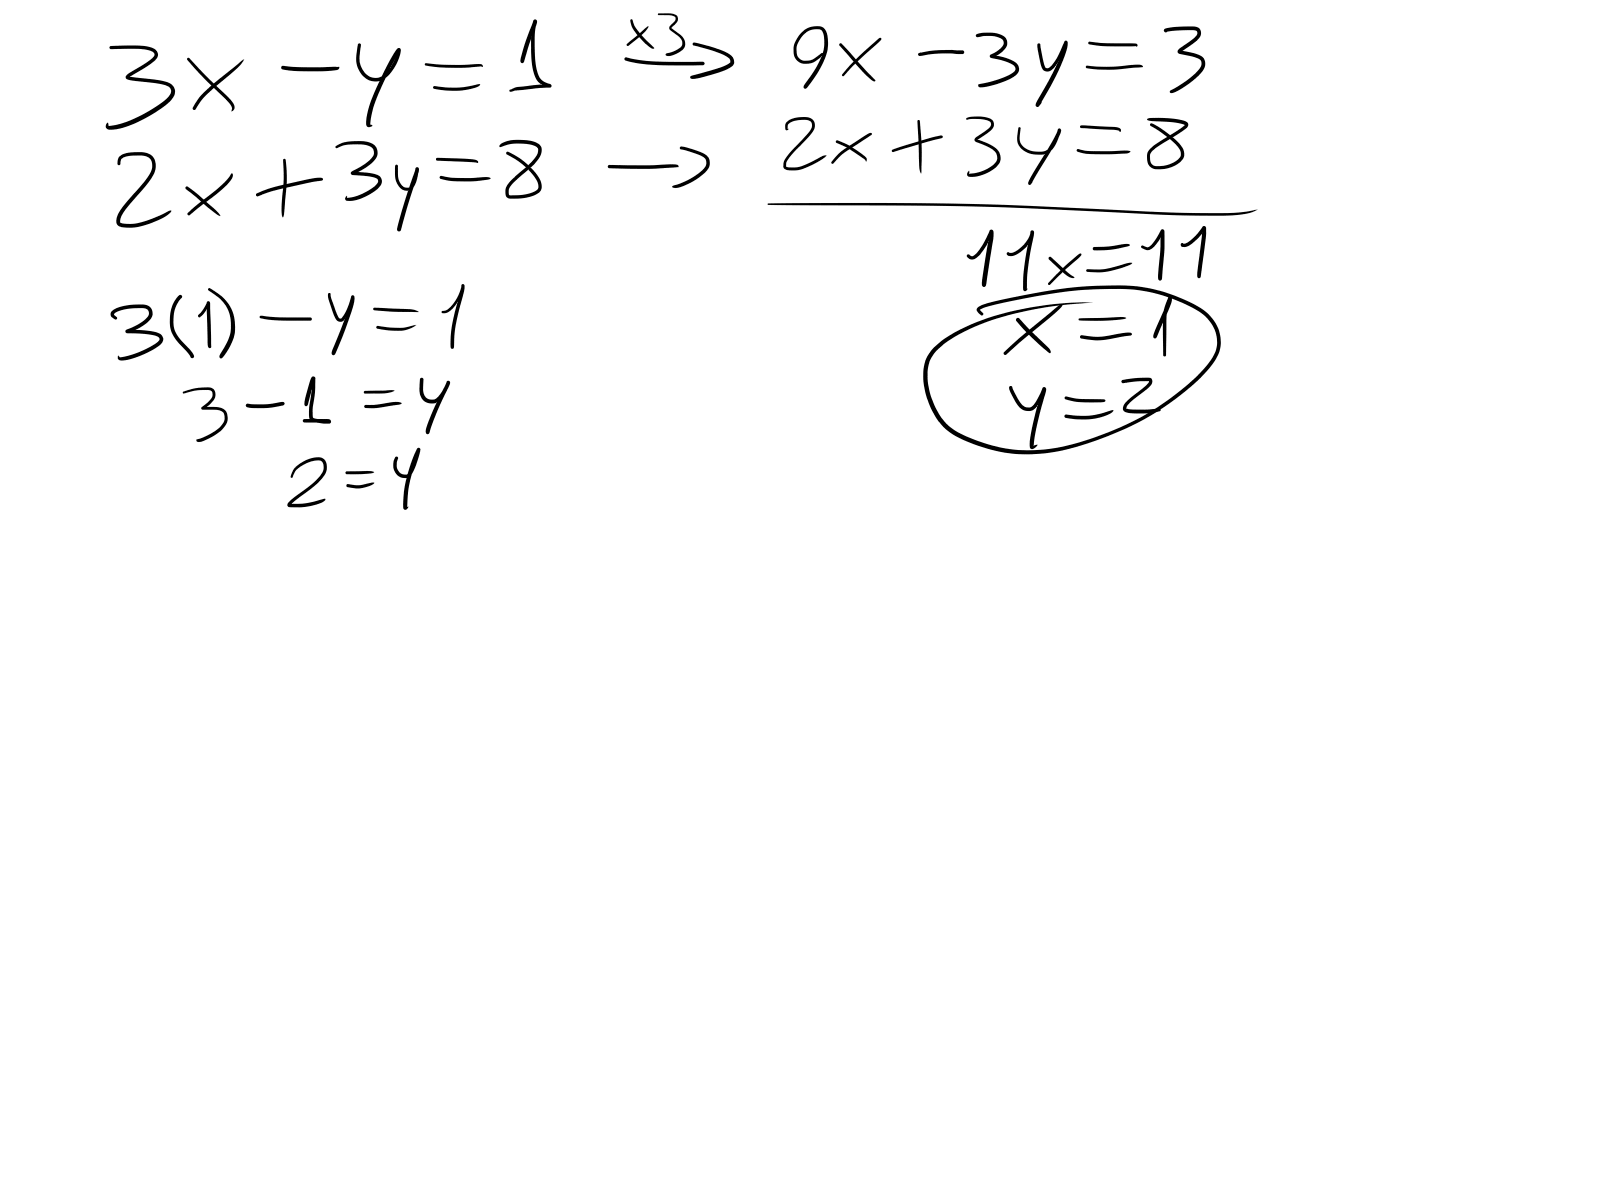 3x - y = 1 x3→ 9x - 3y = 3
2x + 3y = 8 → 2x + 3y = 8
11x = 11
x = 1
y = 2
3(1) - y = 1
3 - 1 = y
2 = y